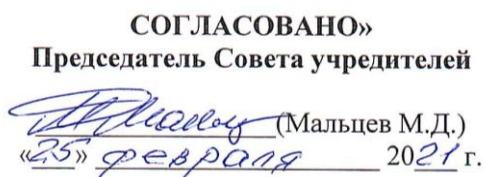 СОГЛАСОВАНО»
Председатель Совета учредителей
(Мальцев М.Д.)
«25» февраля 2021 г.